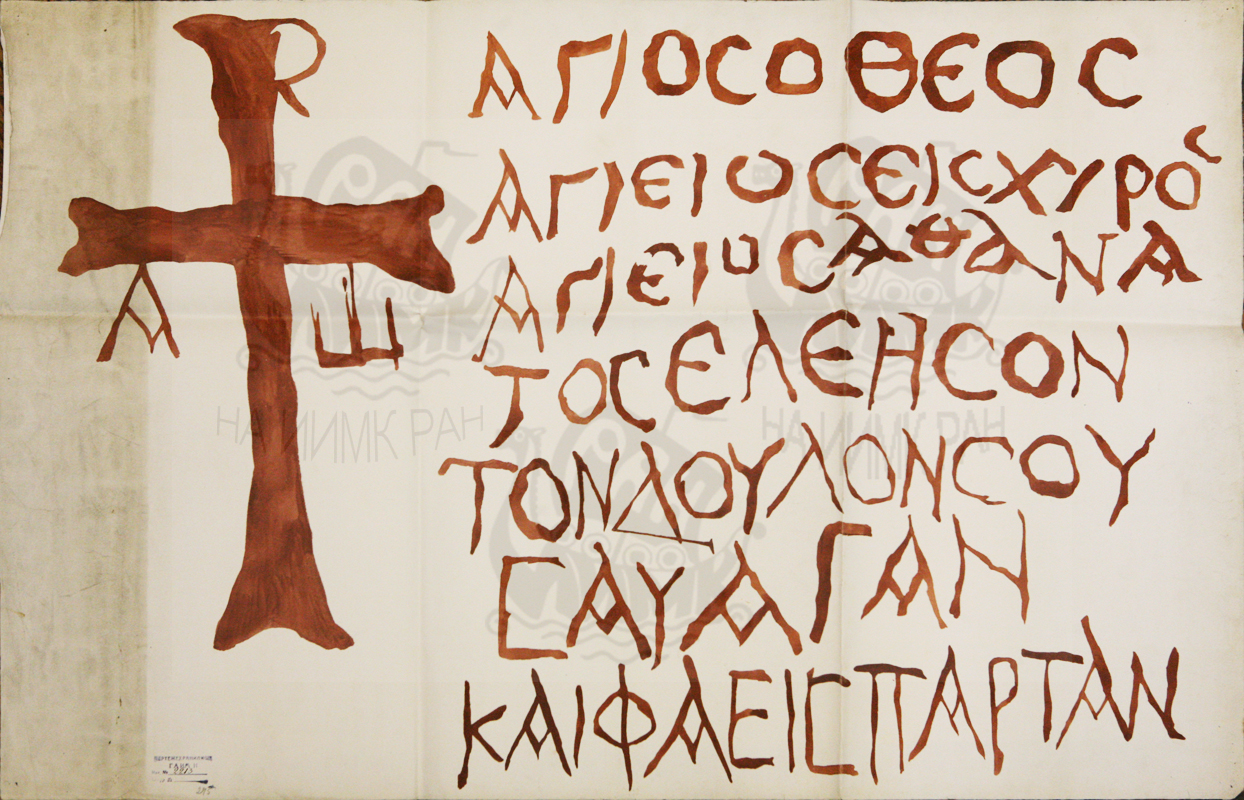 Ρ
Α Ш
ΑΓΙΟϹΟΘΕΟϹ
ΑΓΙΕΙΟϹΕΙϹΧΙΡΟϹ
ΑΓΙΕΙΟϹΑΘΑΝΑ
ΤΟϹΕΛΕΗϹΟΝ
ΤΟΝΔΟΥΛΟΝϹΟΥ
ϹΑΥΑΓΑΝ
ΚΑΙΦΑΕΙϹΠΑΡΤΑΝ
НА ИИМК РАН
НА ИИМК РАН